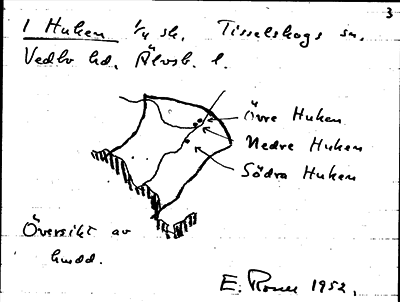 3
1 Huken 1/4 sk. Tisselskogs sn.
Vedbo hd. Älvsb. l.
Övre Huken
Nedre Huken
Södra Huken
Översikt av
huvdd.
E. Rosell 1952.